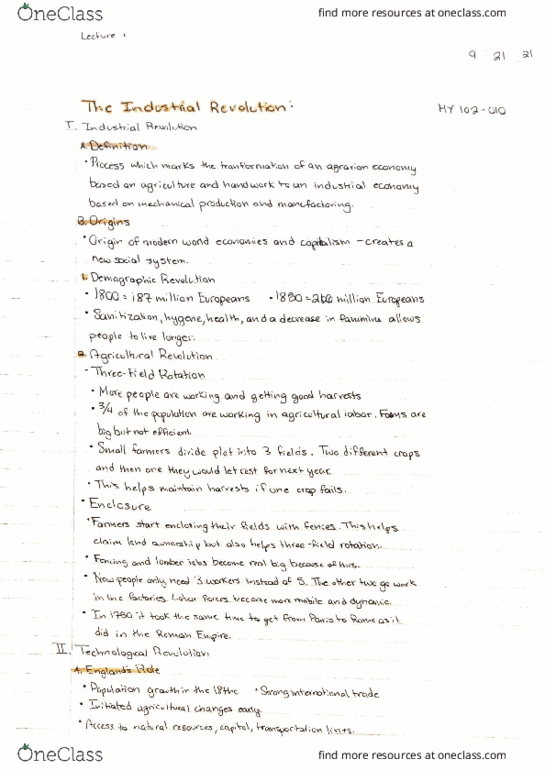 OneClass find more resources at oneclass.com
Lecture 1
9 21 21
The Industrial Revolution:
HY 102-010
I. Industrial Revolution
A. Definition
• Process which marks the transformation of an agrarian economy
based on agriculture and handwork to an industrial economy
based on mechanical production and manufactoring.
B. Origins
• Origin of modern world economies and capitalism - creates a
new social system.
1. Demographic Revolution
• 1800 = 187 million Europeans • 1850 = 266 million Europeans
• Sanitization, hygene, health, and a decrease in allows
people to live longer.
2. Agricultural Revolution
- Three-field Rotation
• More people are working and getting good harvests
• 3/4 of the population are working in agricultural labor. Farms are
big but not efficient.
• Small farmers divide plot into 3 fields. Two different crops
and then one they would let rest for next year.
• This helps maintain harvests if one crop fails.
• Enclosure
• Farmers start enclosing their fields with fences. This helps
claim land ownership but also helps three-field rotation.
• Fencing and lumber jobs become real big because of this.
• Now people only need 3 workers instead of 5. The other two go work
in the factories. Labor forces become more mobile and dynamic.
• In 1750 it took the same time to get from Paris to Rome as it
did in the Roman Empire.
II. Technological Revolution
A. England's Role
• Population growth in the 18thc • Strong international trade
• Initiated agricultural changes early.
• Access to natural resources, capital, transportation lines.
OneClass find more resources at oneclass.com